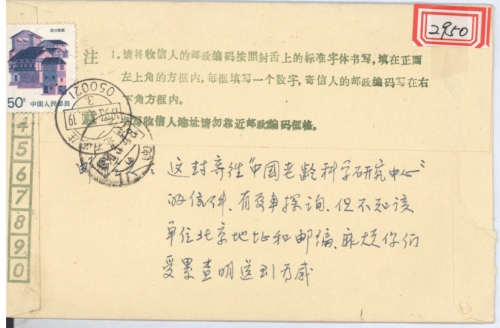 2950
50分 中国人民邮政
注
1.请将收信人的邮政编码按照封舌上的标准字体书写,填在正面
左上角的方框内,每框填写一个数字,寄信人的邮政编码写在右
下角方框内。
收信人地址请勿靠近邮政编码框格。
050021
4
5
6
7
8
9
0
这封寄往“中国老龄科学研究中心”
的信件,有急事探询,但不知该
单位北京地址和邮编,麻烦你们
受累查明送到为感